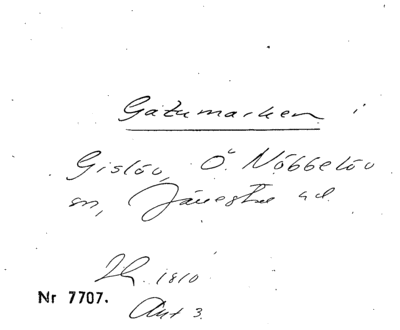 Gatumarken i
Gislöv, Ö. Nöbbelöv
sn, Järrestad hd.
1810
Nr 7707.
Akt 3.